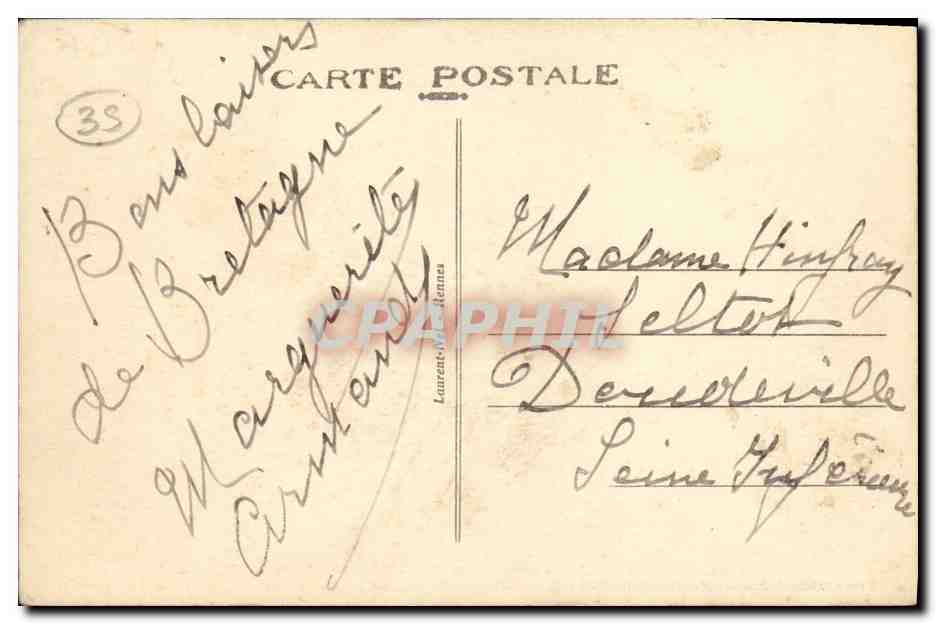 CARTE POSTALE
35
Bons baisers
de Bretagne
Marguerite
Armand
Laurent-Nel Rennes
CPAPHIL
Madame Hinfray
Seltot
Doudeville
Seine Inférieure